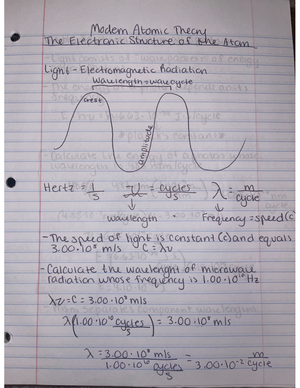 Modern Atomic Theory
The Electronic Structure of the Atom
Light - Electromagnetic Radiation
Wavelength = wave/cycle
crest
amplitude
Hertz = 1/s = cycles/s λ = m/cycle
wavelength · Frequency = speed (c)
- The speed of light is constant (c) and equals
3.00·10⁸ m/s C = λν
- Calculate the wavelenght of microwave
radiation whose frequency is 1.00·10¹⁰ Hz
λν = C = 3.00·10⁸ m/s
λ(1.00·10¹⁰ cycles/s) = 3.00·10⁸ m/s
λ = 3.00·10⁸ m/s / 1.00·10¹⁰ cycles/s = 3.00·10⁻² m/cycle